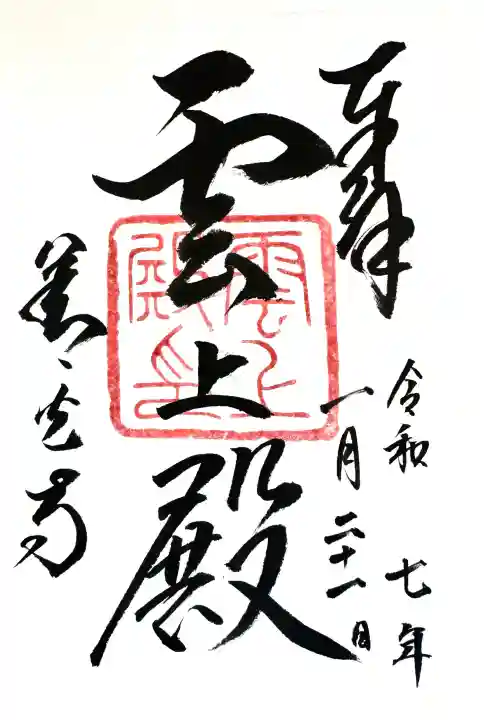 奉拝
令和 七年
一月二十一日
雲上殿
雲上殿印
善光寺